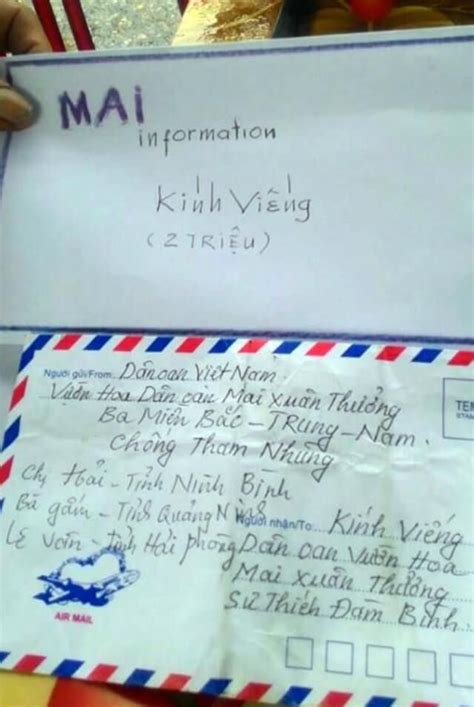 MAI
information
Kính Viếng
(2 TRIỆU)
Người gửi/From: Dân oan Việt Nam.
Vườn Hoa Dân oan Mai Xuân Thưởng
Ba Miền Bắc – Trung – Nam.
Chống Tham Nhũng
TEM
Chị Hải - Tỉnh Ninh Bình
Bà gấm - Tỉnh Quảng
Người nhận/To: Kính Viếng
Lê - Tỉnh Hải phòng Dân oan Vườn Hoa
Mai Xuân Thưởng
Sư Thích Đàm Bình.
AIR MAIL